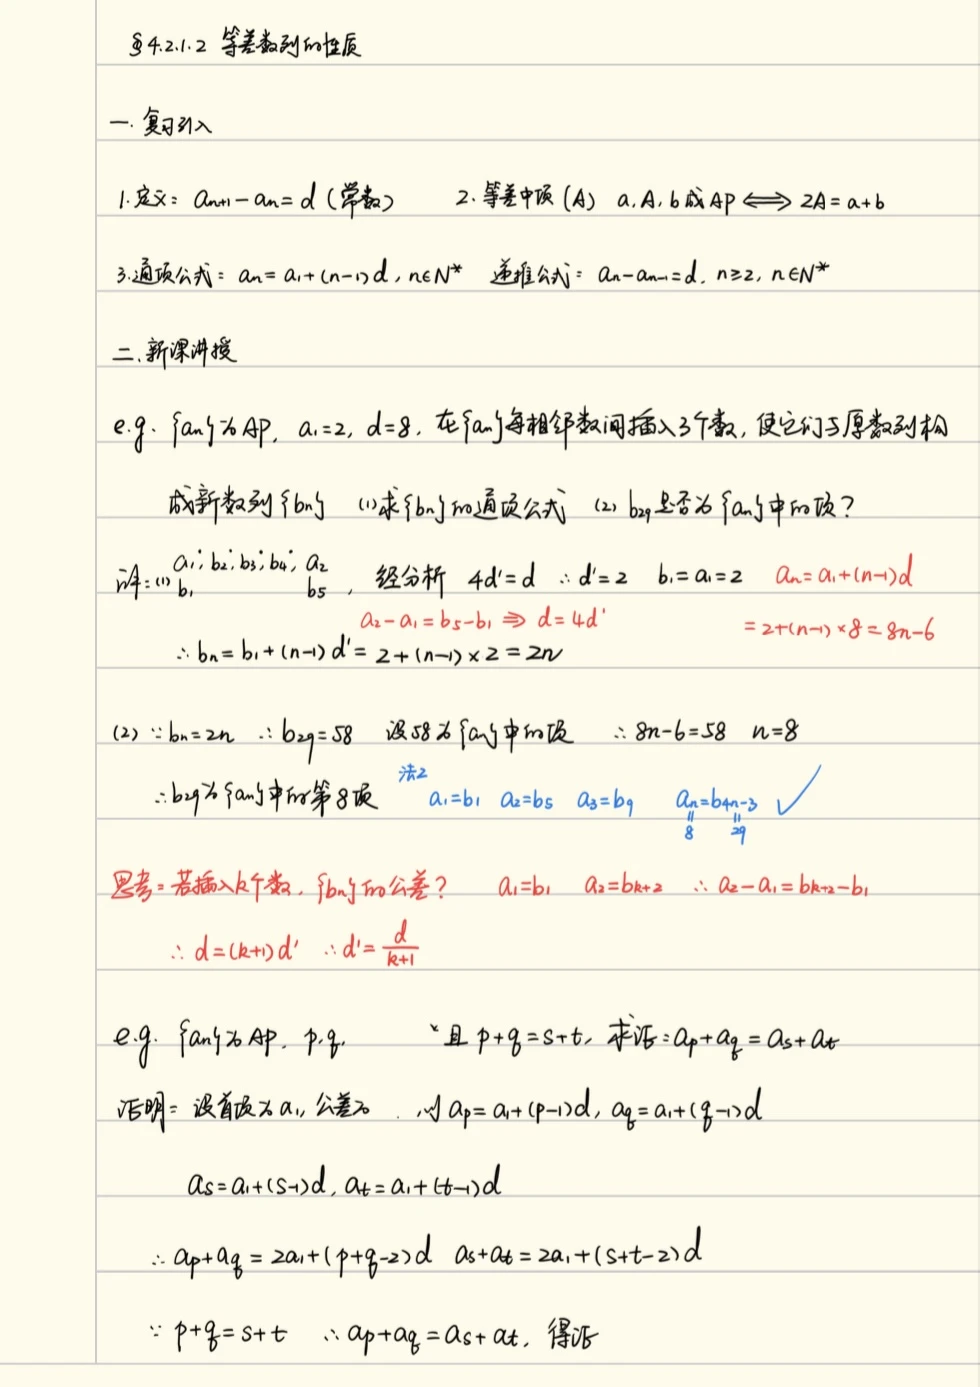 §4.2.1.2 等差数列的性质
一.复习引入
1.定义: aₙ₊₁-aₙ=d(常数) 2.等差中项(A) a,A,b成AP⟺2A=a+b
3.通项公式: aₙ=a₁+(n-1)d, n∈N* 递推公式: aₙ-aₙ₋₁=d, n≥2, n∈N*
二.新课讲授
e.g. {aₙ}为AP, a₁=2, d=8, 在{aₙ}每相邻数间插入3个数,使它们与原数列构
成新数列{bₙ} (1)求{bₙ}的通项公式 (2) b₂₉是否为{aₙ}中的项?
a₁; b₂; b₃; b₄; a₂
解:(1) b₁ b₅, 经分析 4d'=d ∴d'=2 b₁=a₁=2 aₙ=a₁+(n-1)d
a₂-a₁=b₅-b₁ ⇒ d=4d' =2+(n-1)×8=8n-6
∴bₙ=b₁+(n-1)d'=2+(n-1)×2=2n
(2) ∵bₙ=2n ∴b₂₉=58 设58为{aₙ}中的项 ∴8n-6=58 n=8
∴b₂₉为{aₙ}中的第8项 法2 a₁=b₁ a₂=b₅ a₃=b₉ aₙ=b₄ₙ₋₃ ✓
॥ ॥
8 29
思考:若插入k个数,{bₙ}的公差? a₁=b₁ a₂=bₖ₊₂ ∴a₂-a₁=bₖ₊₂-b₁
∴d=(k+1)d' ∴d'=d/(k+1)
e.g. {aₙ}为AP, p,q, 且p+q=s+t, 求证:aₚ+a_q=aₛ+aₜ
证明:设首项为a₁,公差为 ,则aₚ=a₁+(p-1)d, a_q=a₁+(q-1)d
aₛ=a₁+(s-1)d, aₜ=a₁+(t-1)d
∴aₚ+a_q=2a₁+(p+q-2)d aₛ+aₜ=2a₁+(s+t-2)d
∵p+q=s+t ∴aₚ+a_q=aₛ+aₜ, 得证